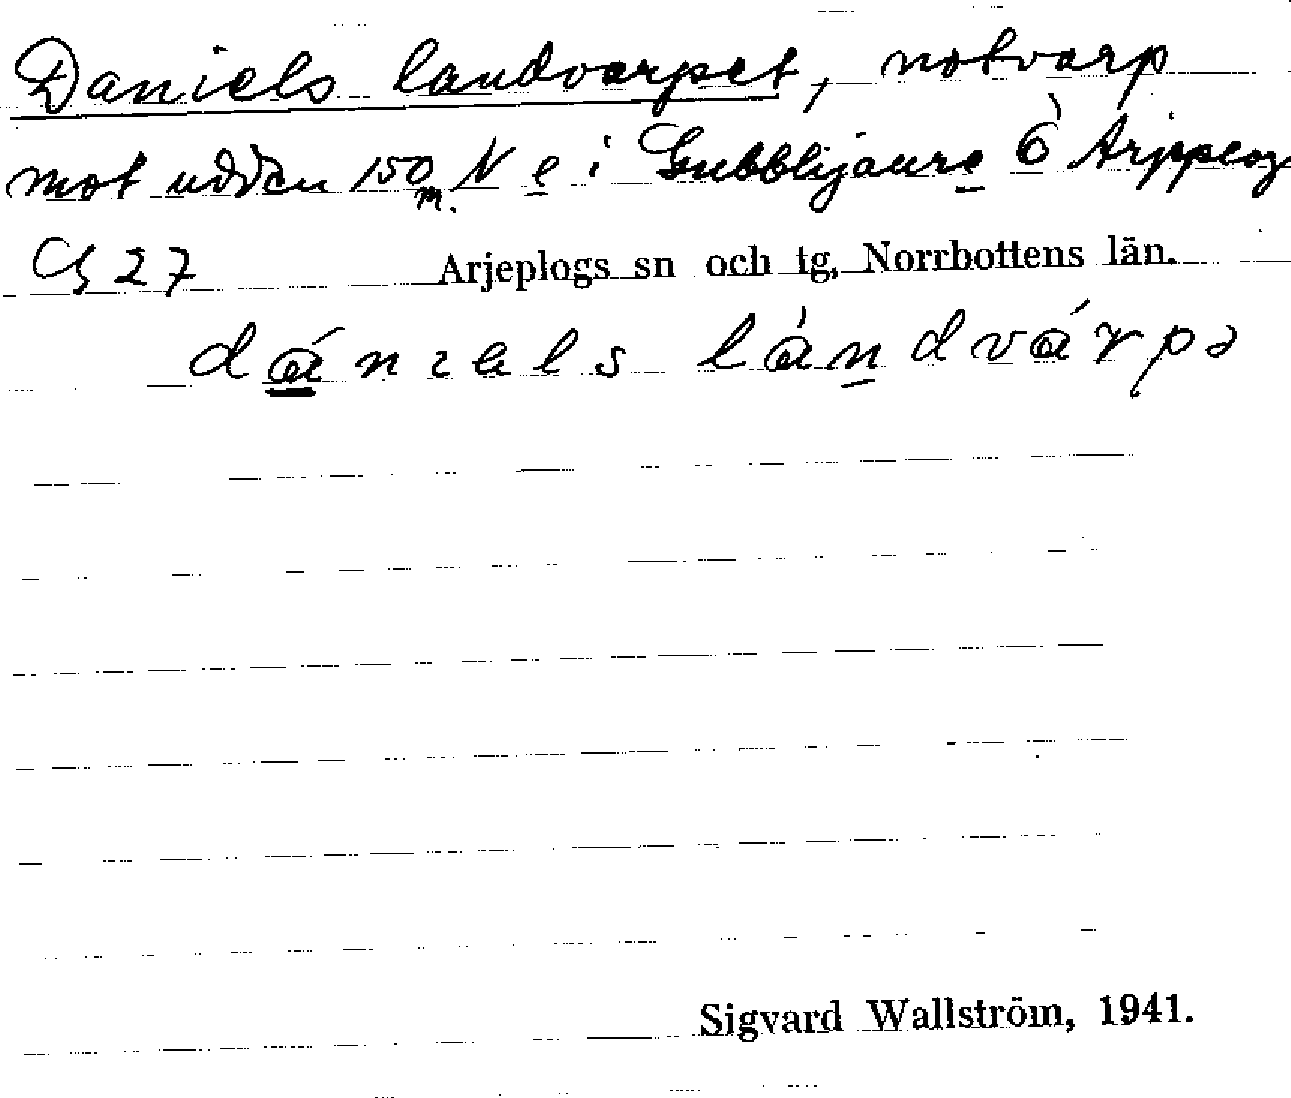 Daniels landvarpet, notvarp
mot udden 150 m. N e i Gubblijaure Ö Arjeplog
27 Arjeplogs sn och tg, Norrbottens län.
dániels lándvárpə
Sigvard Wallström, 1941.